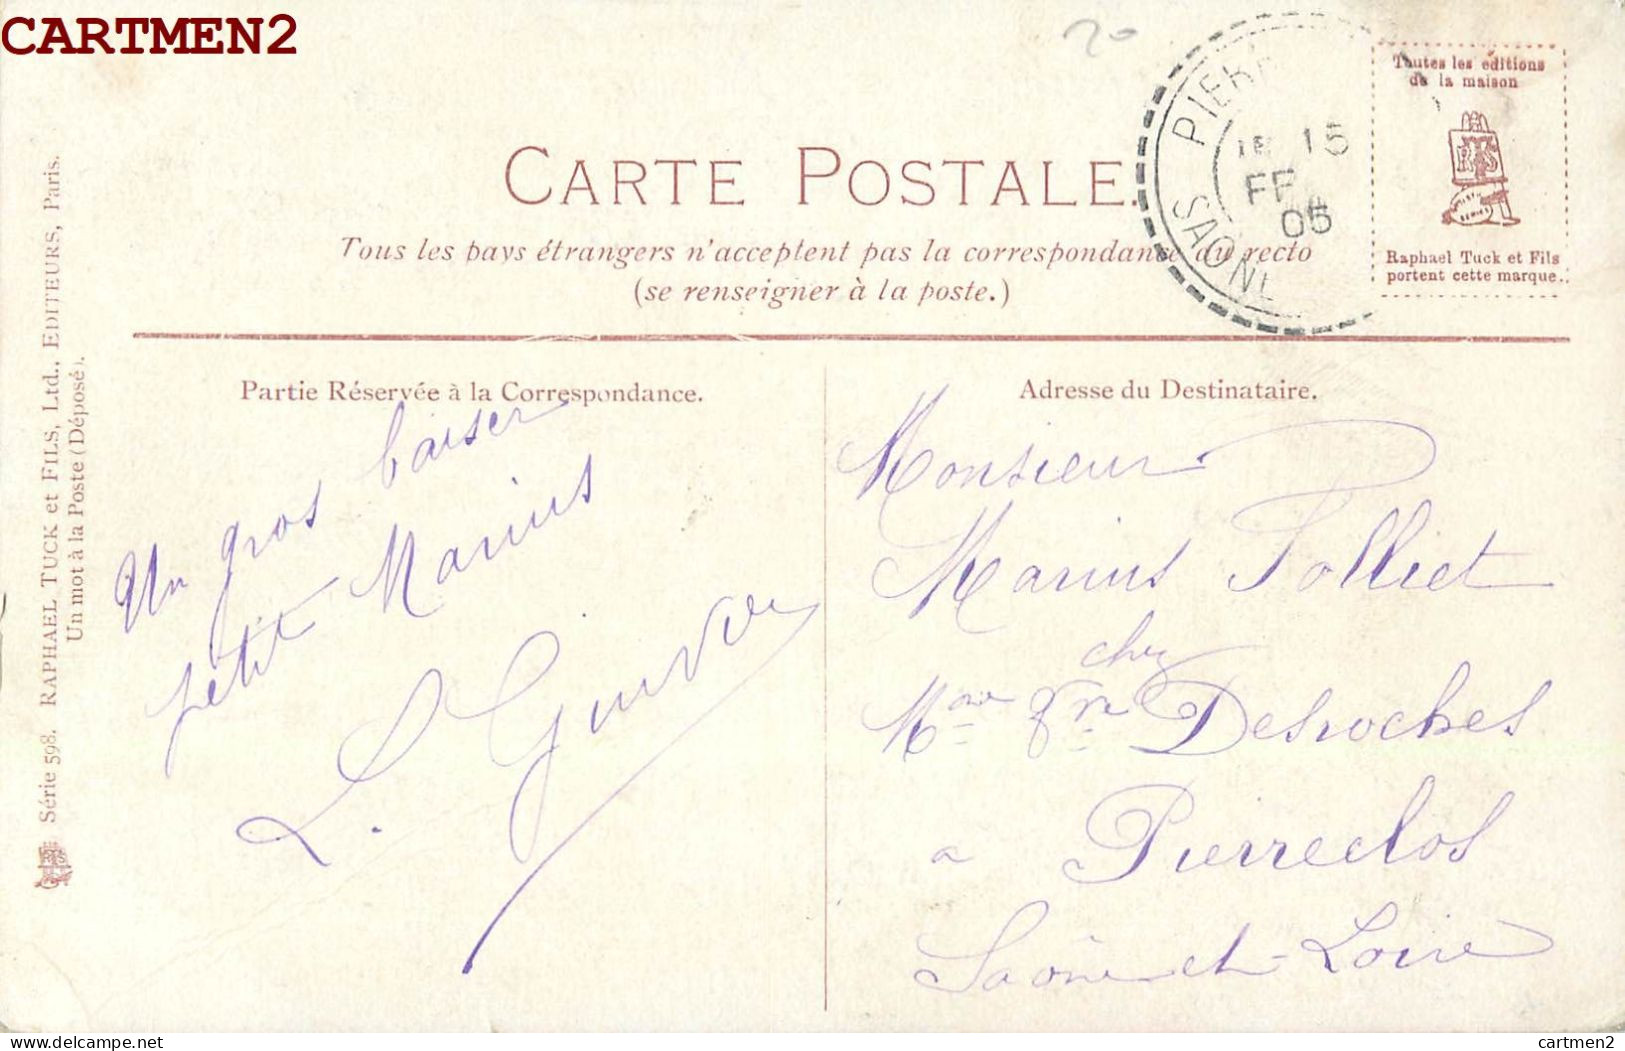 CARTMEN2
20
Toutes les éditions
de la maison
Raphael Tuck et Fils
portent cette marque.
PIERR
15
FE
05
SAONE
CARTE POSTALE.
Tous les pays étrangers n'acceptent pas la correspondance au recto
(se renseigner à la poste.)
Partie Réservée à la Correspondance.
Un gros baiser
petit Marius
L.
Adresse du Destinataire.
Monsieur
Marius Polliet
chez
Mme Vve Desroches
a Pierreclos
Saône et-Loire
Série 598. RAPHAEL TUCK et FILS, Ltd., EDITEURS, Paris.
Un mot à la Poste (Déposé).
delcampe.net
cartmen2